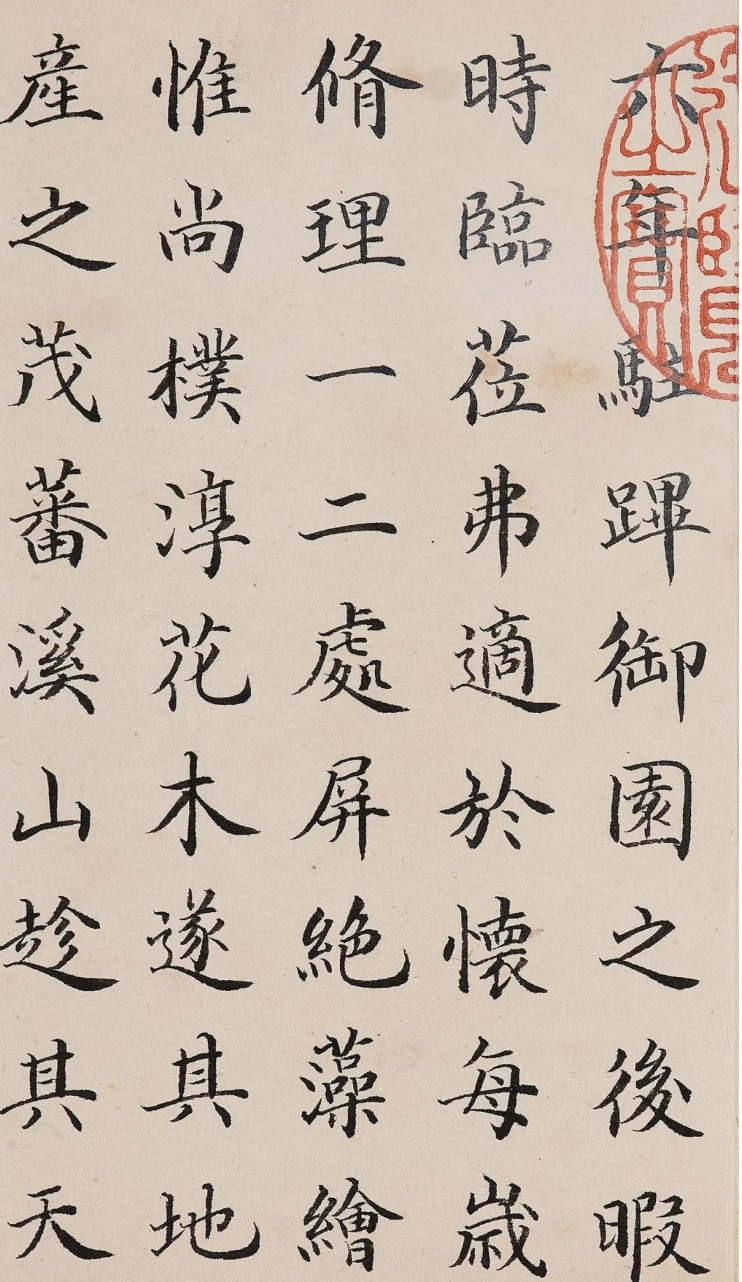 六年駐蹕御園之後暇
時臨莅弗適於懷每歲
脩理一二處屏絕藻繪
惟尚樸淳花木遂其地
產之茂蕃溪山趁其天